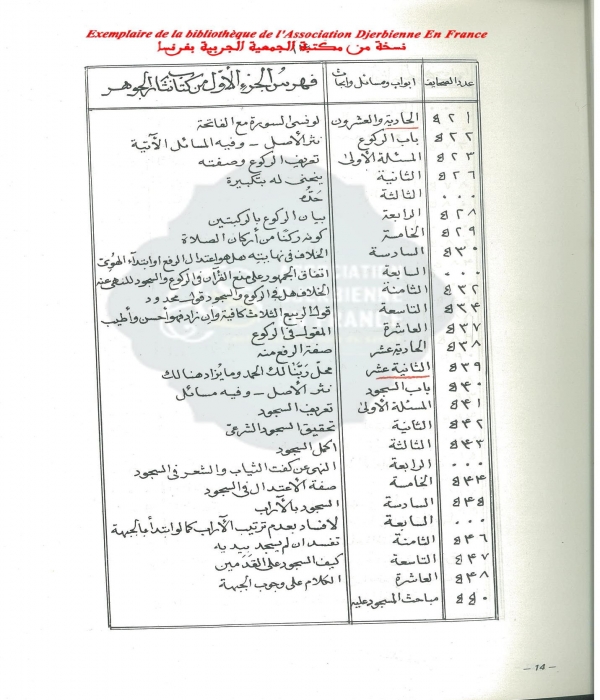 Exemplaire de la bibliothèque de l'Association Djerbienne En France
نسخة من مكتبة الجمعية الجربية بفرنسا
عدد الصحايف ابواب ومسائل وابحاث فهرس الجزء الأول من كتاب نثار الجوهر
٤٢١ الحادية والعشرون لو نسى السورة مع الفاتحة
٤٢٢ باب الركوع نثر الأصل - وفيه المسائل الآتية
٤٢٣ المسئلة الأولى تعريف الركوع وصفته
٤٢٦ الثانية ينحنى له بتكبيرة
٠٠٠ الثالثة حدّه
٤٢٨ الرابعة بيان الركوع بالركبتين
٤٢٩ الخامسة كونه ركنا من أركان الصلاة
٤٣٠ السادسة الخلاف فى نهايته هل هو اعتدال الرفع او ابتداء الهوىّ
٠٠٠ السابعة اتفاق الجمهور على منع القرآن فى الركوع والسجود للنهى عنه
٤٣٢ الثامنة الخلاف هل فى الركوع والسجود قول محدود
٤٣٤ التاسعة قول الربيع الثلاث كافية وان زاد فهو أحسن وأطيب
٤٣٧ العاشرة المقول فى الركوع
٤٣٨ الحادية عشر صفة الرفع منه
٤٣٩ الثانية عشر محل ربّنا لك الحمد وما يزاد هنالك
٤٤٠ باب السجود نثر الأصل - وفيه مسائل
٤٤١ المسئلة الأولى تعريف السجود
٤٤٢ الثانية تحقيق السجود الشرعىّ
٤٤٣ الثالثة اكمل السجود
٠٠٠ الرابعة النهى عن كفت الثياب والشعر فى السجود
٤٤٤ الخامسة صفة الاعتدال فى السجود
٤٤٥ السادسة السجود بالآراب
٠٠٠ السابعة لا فساد بعدم ترتيب الآراب كما لو ابتدأ بالجبهة
٤٤٦ الثامنة تفسد ان لم يسجد بيديه
٤٤٧ التاسعة كيف السجود على القدمين
٤٤٨ العاشرة الكلام على وجوب الجبهة
٤٥٠ مباحث المسجود عليه
- 14 -